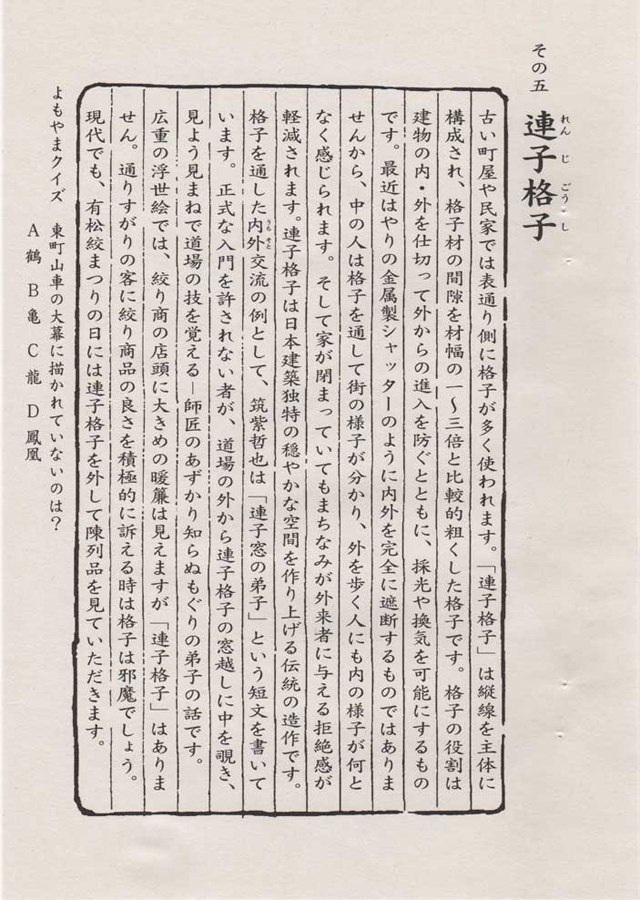 その五
連子格子
れんじごうし
古い町屋や民家では表通り側に格子が多く使われます。「連子格子」は縦線を主体に
構成され、格子材の間隙を材幅の一～三倍と比較的粗くした格子です。格子の役割は
建物の内・外を仕切って外からの進入を防ぐとともに、採光や換気を可能にするもの
です。最近はやりの金属製シャッターのように内外を完全に遮断するものではありま
せんから、中の人は格子を通して街の様子が分かり、外を歩く人にも内の様子が何と
なく感じられます。そして家が閉まっていてもまちなみが外来者に与える拒絶感が
軽減されます。連子格子は日本建築独特の穏やかな空間を作り上げる伝統の造作です。
格子を通した内外交流の例として、筑紫哲也は「連子窓の弟子」という短文を書いて
うちそと
います。正式な入門を許されない者が、道場の外から連子格子の窓越しに中を覗き、
見よう見まねで道場の技を覚える―師匠のあずかり知らぬもぐりの弟子の話です。
広重の浮世絵では、絞り商の店頭に大きめの暖簾は見えますが「連子格子」はありま
せん。通りすがりの客に絞り商品の良さを積極的に訴える時は格子は邪魔でしょう。
現代でも、有松絞まつりの日には連子格子を外して陳列品を見ていただきます。
よもやまクイズ 東町山車の大幕に描かれていないのは？
A 鶴 B 亀 C 龍 D 鳳凰